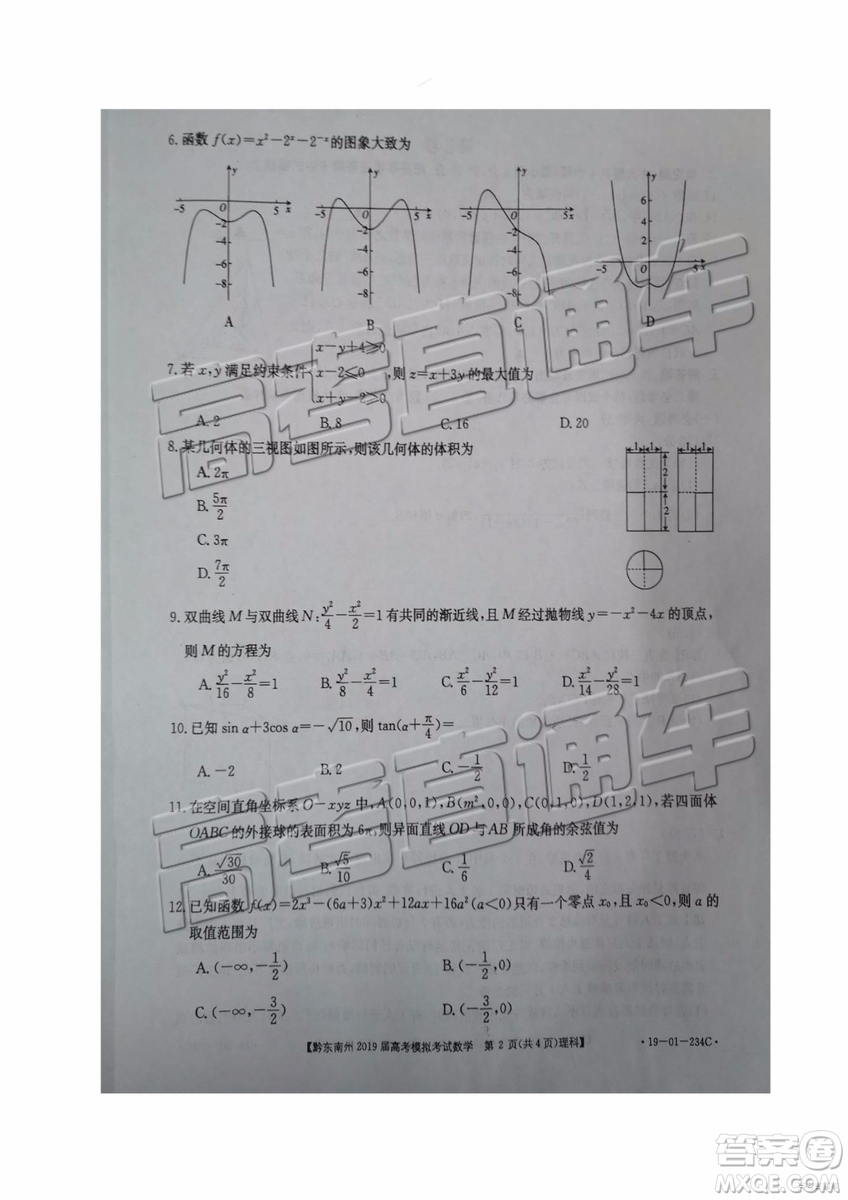 6. 函数 f(x)=x²-2ˣ-2⁻ˣ的图象大致为
y y y y
-5 O 5 x -5 O 5 x -5 O 5 x -5 O 5 x
-2 -4 -6 -8
-2 -4 -6 -8
-2 -4 -6 -8
6 4 2 -2
A B C D
7. 若 x,y 满足约束条件{x-y+4≥0, x-2≤0, x+y-2≥0, 则 z=x+3y 的最大值为
A. 2 B. 8 C. 16 D. 20
8. 某几何体的三视图如图所示,则该几何体的体积为
A. 2π
B. 5π/2
C. 3π
D. 7π/2
1 1 1 1
2
2
9. 双曲线 M 与双曲线 N: y²/4-x²/2=1 有共同的渐近线,且 M 经过抛物线 y=-x²-4x 的顶点,
则 M 的方程为
A. y²/16-x²/8=1 B. y²/8-x²/4=1 C. x²/6-y²/12=1 D. x²/14-y²/28=1
10. 已知 sin α+3cos α=-√10,则 tan(α+π/4)=
A. -2 B. 2 C. -1/2 D. 1/2
11. 在空间直角坐标系 O-xyz 中,A(0,0,1),B(m²,0,0),C(0,1,0),D(1,2,1),若四面体
OABC 的外接球的表面积为 6π,则异面直线 OD 与 AB 所成角的余弦值为
A. √30/30 B. √5/10 C. 1/6 D. √2/4
12. 已知函数 f(x)=2x³-(6a+3)x²+12ax+16a²(a<0)只有一个零点 x₀,且 x₀<0,则 a 的
取值范围为
A. (-∞,-1/2) B. (-1/2,0)
C. (-∞,-3/2) D. (-3/2,0)
【黔东南州 2019 届高考模拟考试数学 第 2 页(共 4 页)理科】 ·19-01-234C·
高考直通车
高考直通车
答案圈
MXQE.COM